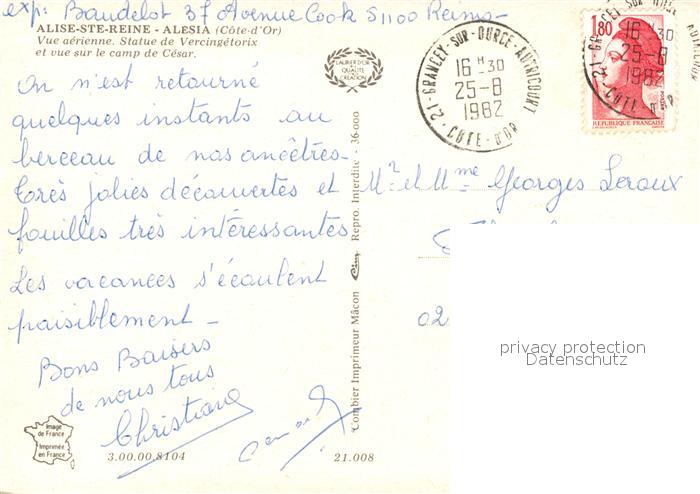 exp: Baudelot 37 Avenue Cook 51100 Reims -
ALISE-STE-REINE - ALESIA (Côte-d'Or)
Vue aérienne. Statue de Vercingétorix
et vue sur le camp de César.
on n'est retourné
quelques instants au
berceau de nos ancêtres -
très jolies découvertes et
fouilles très intéressantes
Les vacances s'écoulent
paisiblement -
Bons Baisers
de nous tous
Christiane
Image
de France
Imprimée
en France
3.00.00.8104
21.008
LAURIER D'OR
DE LA
QUALITÉ
CRÉATION
Combier Imprimeur Mâcon Cim Repro. Interdite - 36-000
21-GRANCEY-SUR-OURCE-AUTRICOURT
16 H 30
25-8
1982
CÔTE-D'OR
1,80
REPUBLIQUE FRANÇAISE
16 H 30
25-8
1982
CÔTE-D'OR
Mr et Mme Georges Leroux
02
privacy protection
Datenschutz